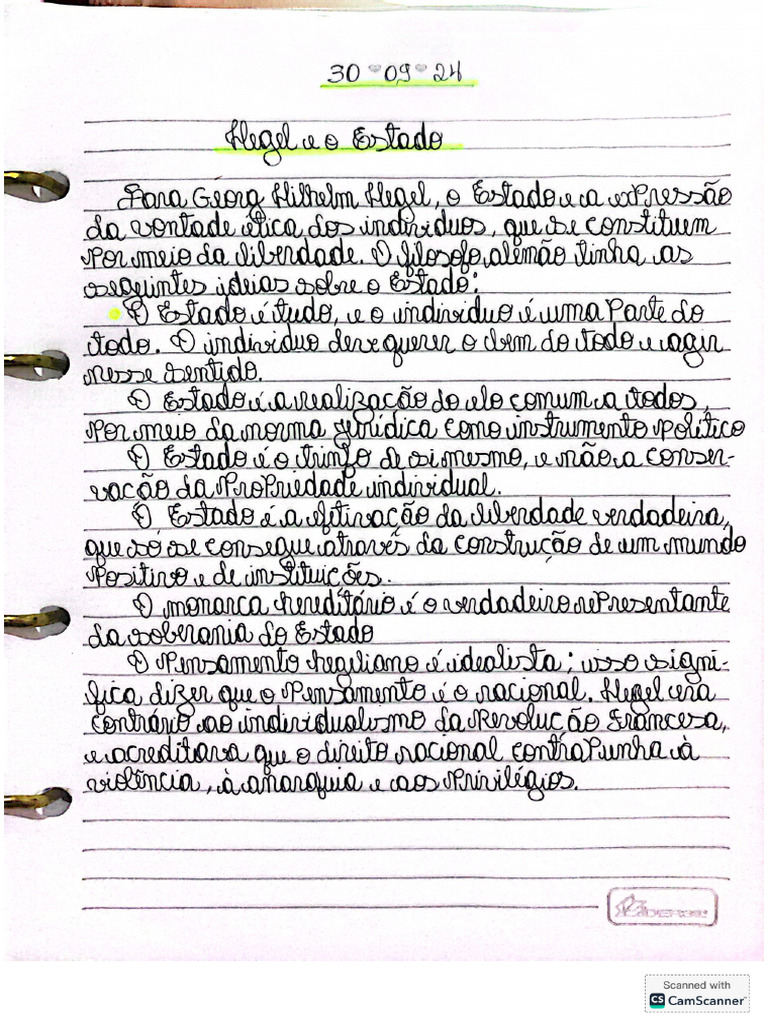 30 09 24
Hegel e o Estado
Para Georg Wilhelm Hegel, o Estado e a expressão
da vontade ética dos individuos, que se constituem
por meio da liberdade. O filosofo alemão tinha as
seguintes ideias sobre o Estado:
O Estado é tudo, e o individuo é uma parte do
todo. O individuo deve querer o bem do todo e agir
nesse sentido.
O Estado é a realização do elo comum a todos,
por meio da norma jurídica como instrumento político
O Estado é o triunfo de si mesmo, e não a conser-
vação da propriedade individual.
O Estado é a efetivação da liberdade verdadeira,
que só se consegue através da construção de um mundo
positivo e de instituições.
O monarca hereditário é o verdadeiro representante
da soberania do Estado
O pensamento hegeliano é idealista; isso signi-
fica dizer que o pensamento é o racional. Hegel era
contrário ao individualismo da Revolução Francesa,
e acreditava que o direito racional contrapunha à
violência, à anarquia e aos privilégios.
Scanned with
CS CamScanner